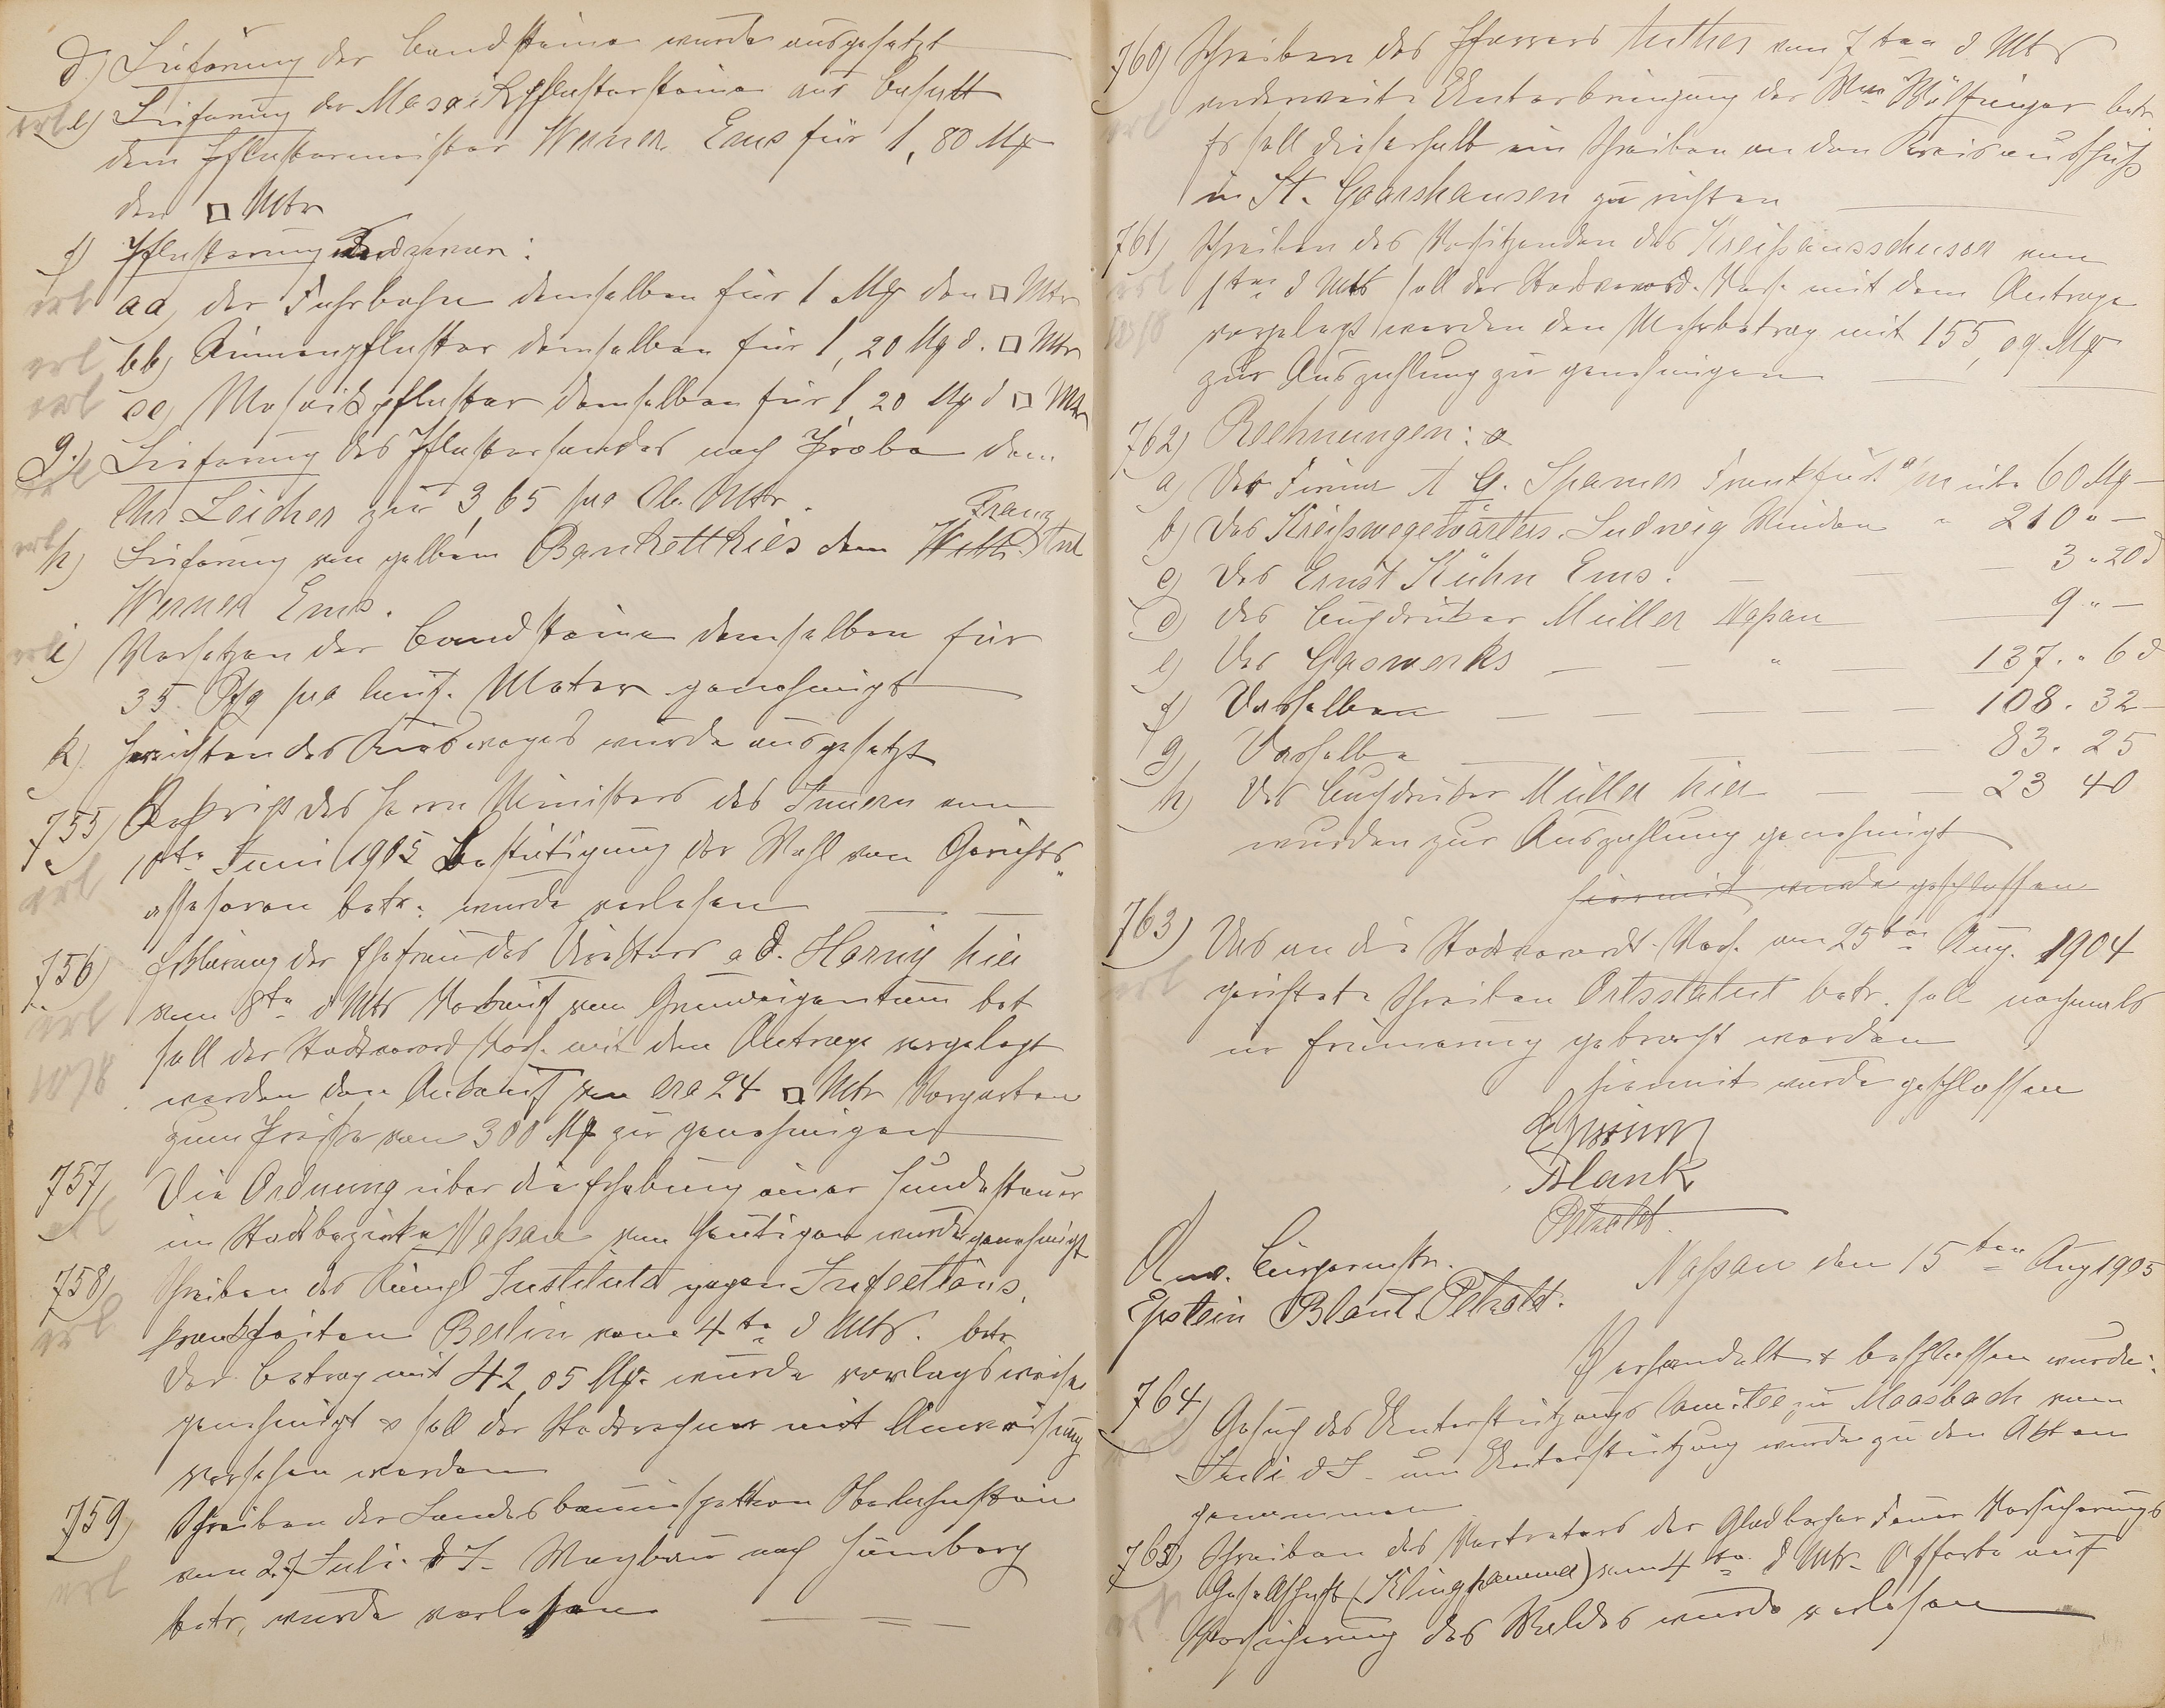 d.) Lieferung der Bandsteine wurde ausgesetzt
erl e) Lieferung der Mosaikpflastersteine aus Basalt
dem Pflastermeister Werner Ems für 1,80 Mk
den □ Mtr
f) Pflasterung
erl aa, der Fuhrbahn demselben für 1 Mk den □ Mtr
erl bb, Rinnenpflaster demselben für 1,20 Mk d. □ Mtr
erl cc, Mosaikpflaster demselben für 1,20 Mk d □ Mtr
g.) Lieferung des Pflastersandes nach Probe dem
Chr Leicher zu 3,65 pro Cb. Mtr.
Franz
erl h) Lieferung von gelbem Bankettkies dem Wilh.
Werner Ems.
erl i) Versetzen der Bandsteine demselben für
35 Pfg pro lauf. Meter genehmigt
k) Herrichten des Kiesweges wurde ausgesetzt
755) Reskript des Herrn Ministers des Innern vom
ten Juni 1905 Bestätigung der Wahl von Gerichts-
erl
assessoren betr. wurde verlesen
756) Erklärung der Ehefrau des Direktors a d. Hornig hier
erl vom 8ten d Mts Verkauf von Grundeigentum bet
soll der Stadtverord Vers. mit dem Antrage vorgelegt
10/8 werden den Ankauf von cra 24 □ Mtr Vorgarten
zum Preise von 300 Mk zu genehmigen
757, Die Ordnung über die Erhebung einer Hundesteuer
erl im Stadtbezirke Naßau vom heutigen wurde genehmigt
758) Schreiben des Königl Instituts gegen Infections,
erl krankheiten Berlin vom 4ten d Mts. betr
Der Betrag mit 42,05 Mk. wurde vorlagsweise
genehmigt & soll der Stadtrechner mit Anweisung
versehen werden
759) Schreiben der Landesbauinspektion Oberlahnstein
vom 27 Juli d J. Wegbau nach Hömberg
erl
betr, wurde verlesen
760) Schreiben des Pfarrers Anthes vom 7ten d Mts
erl anderweite Unterbringung der Wwe betr
Es soll dieserhalb ein Schreiben an den Kreisausschuß
in St. Goarshausen zu richten
761) Schreiben des Vorsitzenden des Kreißausschusses vom
erl 1ten d Mts soll der Stadtverord. Vers. mit dem Antrage
10/8 vorgelegt werden den Mehrbetrag mit 155,09 Mk
zur Auszahlung zu genehmigen
762) Rechnungen:
a) Der Firma A G. Spamer Frankfurt a/M üb. 60 Mk —
b) Des Kreißwegewärters Ludwig Winden " 210 " —
c) Des Ernst Kühn Ems. — — — 3 " 20 d
d) des Buchdruker Müller Naßau — 9 " —
e) Des Gaswerks — — " — 137. " 60
f) Desselben — — — — — 108. 32 —
g) Desselbe — — — 83. 25
h) Des Buchdruker Müller hier — — 23 40
wurden zur Auszahlung genehmigt
hiermit wurde geschlossen
763) Das an die Stadtverordt. Vers. am 25ten Aug. 1904
erl gerichtete Schreiben Ortsstatut betr. soll nochmals
in Erinnerung gebracht werden
hiermit wurde geschlossen
Blank
Petzoldt.
Anw. Bürgermstr.
Epstein Blank Petzoldt.
Naßau den 15ten Aug 1905
Verhandelt & beschlossen wurde:
764) Gesuch des Unterstützungs Comitee zu Maasbach vom
Juli d J. um Unterstützung wurde zu den Akten
genommen
765) Schreiben des Vertreters der Gladbacher Feuer Versicherungs
Gesellschaft (Klinghammer) vom 4ten d Mts. Offerte auf
Versicherung des Waldes wurde verlesen